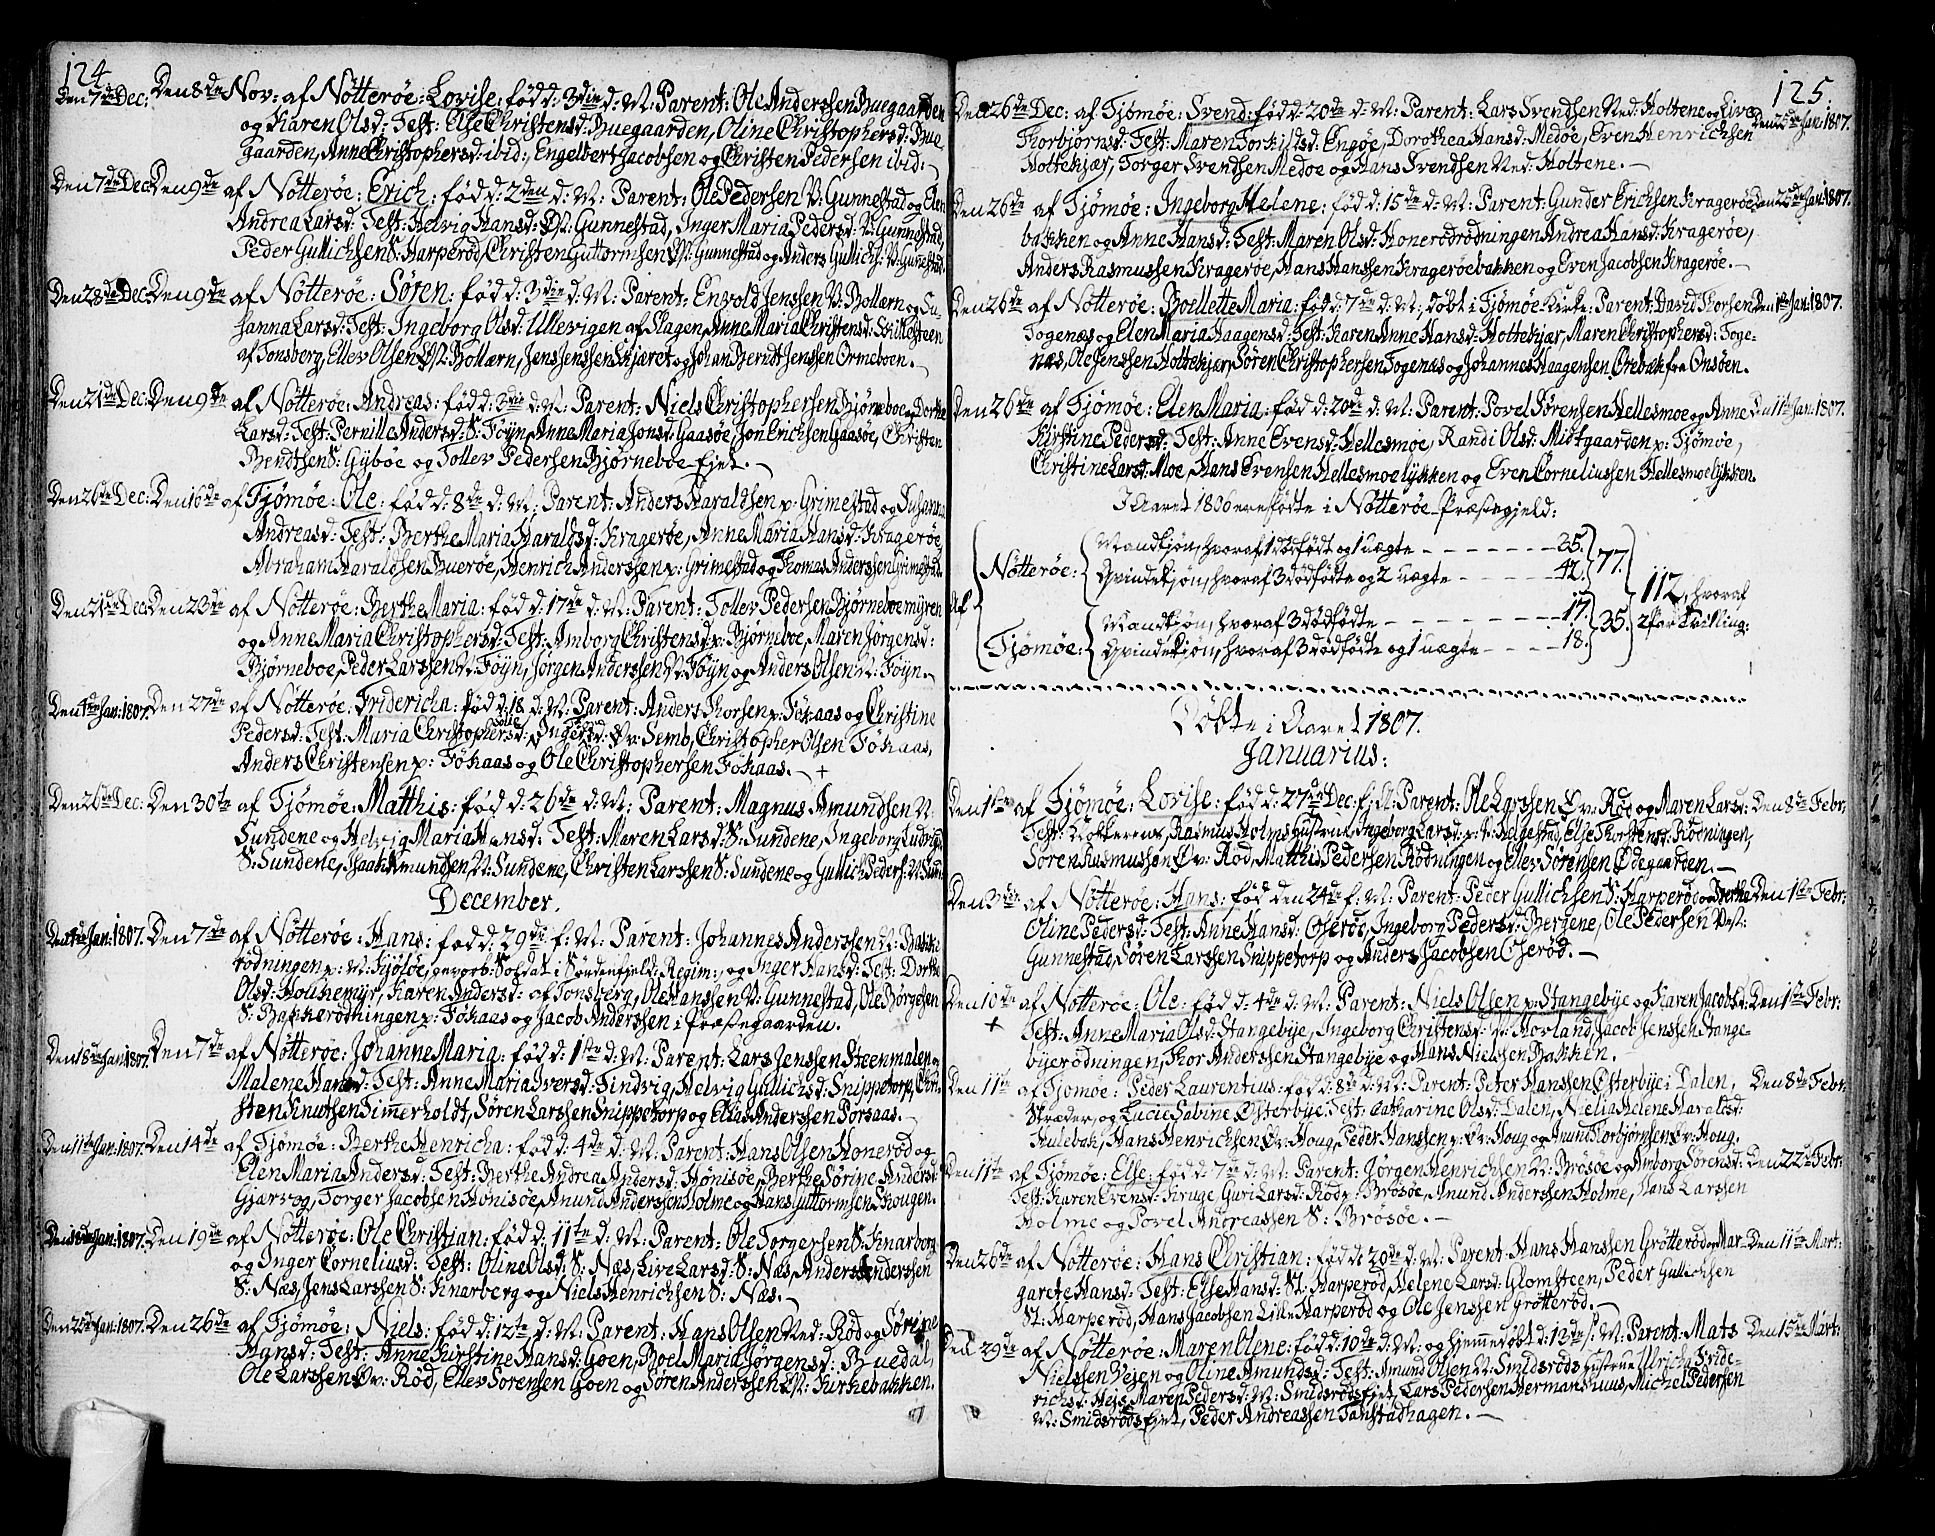 124
Den 7de Dec: Den 8de Nov: af Nötteröe: Lovise: föd d: 3die d: M: Parent: Ole Anderssen Buegaarden
og Karen Olsd: Test: Else Christensd: Buegaarden, Oline Christophersd: Bue
Gaarden, Anne Christophersd: ibid:, Engelbert Jacobsen og Christen Pedersen ibid: —
Den 7de Dec: Den 9de af Nötteröe: Erich: föd d: 2den d: M: Parent: Ole Pedersen V: Gunnestad og Elen
Andrea Larsd: Test: Helvig Hansd: V: Gunnestad, Inger Maria Pedersd: V: Gunnestad,
Peder Gullichsen S: Harperöd, Christen Guttormsen V: Gunnestad og Anders Gullichs: V: Gunestad.
Den 28de Dec: Den 9de af Nötteröe: Sören: föd d: 3die d: M: Parent: Envold Jenssen V: Bollærn og Su
sanna Larsd: Test: Ingeborg Olsd: Ullevigen af Slagen, Anne Maria Christensd:
af Tonsberg, Ellev Olsen Bollærn, Jens Jenssen Skjæret og Johan Berndt Jenssen Ormeboen. —
Den 21de Dec: Den 9de af Nötteröe: Andreas: föd d: 3die d: M: Parent: Niels Christophersen Bjørneboe og Dorthe
Larsd: Test: Pernille Andersd: S: Föyn, Anne Maria Jonsd: Gaasöe, Jon Erichsen Gaasöe, Christen
Bendtsen S: Gyböe og Tollev Pedersen Bjørneboe Ejet. —
Den 26de Dec: Den 16de af Tjömöe: Ole: föd d: 8de d: M: Parent: Anders Haraldsen p: Grimestad og Susanna
Andreasd: Test: Berthe Maria Haraldsd: Krageröe, Anne Maria Hansd: Krageröe,
Abraham Haraldsen Bueröe, Henrich Anderssen p: Grimestad og Thomas Anderssen Grimestad.
Den 21de Dec: Den 23de af Nötteröe: Berthe Maria: föd d: 17de d: M: Parent: Tollev Pedersen Bjørneboemyren
og Anne Maria Christophersd: Test: Amborg Christensd: p: Bjørneboe, Maren Jørgensd:
Bjørneboe, Peder Larssen N: Föyn, Jørgen Anderssen N: Föyn og Anders Olsen N: Föyn. —
Den 1ste Jan: 1807. Den 27de af Nötteröe: Fridericha: föd d: 18 d: M: Parent: Anders Thorsen p: Föhaas og Christine
Pedersd: Test: Maria Christophersd: Sölie, Inger Hansd: Öv: Semb, Christopher Olsen Föhaas,
Anders Christensen p: Föhaas og Ole Christophersen Föhaas. — +
Den 26de Dec: Den 30te af Tjömöe: Matthis: föd d: 26de d: M: Parent: Magnus Amundsen N:
Sundene og Helvig Maria Hansd: Test: Maren Larsd: S: Sundene, Ingeborg Ludvigsd:
S: Sundene, Isaach Amundsen N: Sundene, Christen Larssen S: Sundene og Gullich Peders: N: Sund:
December.
Den 1ste Jan: 1807. Den 7de af Nötteröe: Hans: föd d: 29de f: M: Parent: Johannes Anderssen N: Bakke
rödningen p: N: Kjölöe, gevorb: Soldat i Söndenfjeld: Regim:, og Inger Hansd: Test: Dorthe
Olsd: Holhemyr, Karen Andersd: af Tonsberg, Ole Hanssen V: Gunnestad, Ole Børgesen
S: Bakkerödningen p: Föhaas og Jacob Anderssen i Præstegaarden.
Den 18de Jan: 1807. Den 7de af Nötteröe: Johanne Maria: föd d: 1ste d: M: Parent: Lars Jenssen Steenmalen og
Malene Hansd: Test: Anne Maria Iversd: Tindvig, Helvig Gullichsd: Snippetorp, Chri
sten Knutsen Timmerholdt, Sören Larssen Snippetorp og Elias Anderssen Porsaas. —
Den 11te Jan: 1807. Den 14de af Tjömöe: Berthe Henricha: föd d: 4de d: M: Parent: Hans Olsen Honeröd og
Elen Maria Andersd: Test: Berthe Andrea Andersd: Hönisöe, Berthe Sörine Andersd:
Gjarvog, Torger Jacobsen Hönisöe, Amund Anderssen Holme og Hans Guttormsen Skougen.
Den 18de Jan: 1807. Den 19de af Nötteröe: Ole Christian: föd d: 11te d: M: Parent: Ole Torgersen S: Knarberg
og Inger Corneliusd: Test: Oline Olsd: S: Næs, Live Larsd: S: Næs, Anders Anderssen
S: Næs, Jens Larssen S: Knarberg og Niels Henrichsen S: Næs. —
Den 25de Jan: 1807. Den 26de af Tjömöe: Niels: föd d: 12te d: M: Parent: Hans Olsen Ned: Röd og Sörine
Hansd: Test: Anne Kirstine Hansd: Goen, Boel Maria Jørgensd: Buedal,
Ole Larssen Öv: Röd, Ellev Sorensen Goen og Sören Anderssen Kirkebakken.
125.
Den 26de Dec: af Tjömöe: Svend: föd d: 20de d: M: Parent: Lars Svendsen Ned: Holtene og Live Den 25de Jan: 1807.
Thorbjörnsd: Test: Maren Torkildsd: Engöe, Dorothea Hansd: Medöe, Even Henrichsen
Holtekjær, Torger Svendsen Medöe og Hans Svendsen Ned: Holtene. —
Den 26de af Tjömöe: Ingeborg Helene: föd d: 15de d: M: Parent: Gunder Erichsen Krageröe Den 25de Jan: 1807.
bakken og Anne Hansd: Test: Maren Olsd: Honerödrödningen Andrea Hansd: Krageröe,
Anders Rasmussen Krageröe, Hans Hanssen Krageröebakken og Even Jacobsen Krageröe. —
Den 26de af Nötteröe: Boellette Maria: föd d: 7de d: M:, döbt i Tjömöe Kirke: Parent: David Thorsen Den 1ste Jan: 1807.
Togenæs og Elen Maria Haagensd: Test: Karen Anne Hansd: Holtekjær, Maren Christophersd: Toge-
næs, Ole Jenssen Holtekjær, Sören Christophersen Togenæs og Johannes Haagensen Örebak fra Onsöen.
Den 26de af Tjömöe: Elen Maria: föd d: 20de d: M: Parent: Povel Sörensen Hellesmoe og Anne Den 11te Jan: 1807.
Kirstine Pedersd: Test: Anne Evensd: Hellesmoe, Randi Olsd: Midtgaarden p: Tjömöe,
Christine Larsd: Moe, Hans Evensen Hellesmoelykken og Even Corneliussen Hellesmoelykken.
I Aaret 1806 ere födte i Nötteröe Præstegjeld:
Af Nötteröe: Mandkjön, hvoraf 1 dödfödt og 1 uægte — 35.
Qvindekjön, hvoraf 3 dödfödte og 2 uægte — 42. 77.
112, hvoraf
Mandkjön, hvoraf 3 dödfödte — 17.
2 Par Tvilling:
Tjömöe: Qvindekjön, hvoraf 3 dödfödte og 1 uægte — 18. 35.
Döbte i Aaret 1807.
Januarius:
Den 1ste af Tjömöe: Lovise: föd d: 27de Dec: f: A: Parent: Ole Larssen Öv: Röd og Maren Larsd: Den 8de Febr:
Test: Klokkerens, Rasmus Holms Hustrue, Ingeborg Larsd: p: Helgestad, Else Thorstensd: Rödningen,
Sören Rasmussen Öv: Röd, Matthis Pedersen Rödningen og Ellev Sörensen Ödegaarden. —
Den 3die af Nötteröe: Hans: föd den 24de f: M: Parent: Peder Gullichsen S: Harperöd og Berthe Den 1ste Febr:
Oline Pedersd: Test: Anne Hansd: Oseröd, Ingeborg Pedersd: Bergene, Ole Pedersen Vest:
Gunnestad, Sören Larssen Snippetorp og Anders Jacobsen Oseröd. —
Den 10de af Nötteröe: Ole: föd d: 4de d: M: Parent: Niels Olsen p: Stangebye og Karen Jacobsd: Den 1ste Febr:
+ Test: Anne Maria Olsd: Stangebye, Ingeborg Christensd: N: Horland, Jacob Jenssen Stange-
byerödningen, Thor Anderssen Stangebye og Hans Nielssen Bakken.
Den 11te af Tjömöe: Peder Laurentius: föd d: 8de d: M: Parent: Peter Hanssen Österbye i Dalen, Den 8de Febr:
Skræder, og Lucie Sabine Österbye. Test: Catharine Olsd: Dalen, Nielia Helene Haraldsd:
Hulebak, Hans Henrichsen Öv: Houg, Peder Hanssen p: Öv: Houg og Amund Thorbjørnsen Öv: Houg.
Den 11te af Tjömöe: Else: föd d: 7de d: M: Parent: Jørgen Henrichsen N: Brösöe og Amborg Sörensd: Den 22de Febr:
Test: Karen Evensd: Kruge, Guri Larsd: Röd p: Brösöe, Amund Anderssen Holme, Hans Larssen
Holme og Povel Andreassen S: Brösöe. —
Den 26de af Nötteröe: Hans Christian: föd d: 20de d: M: Parent: Hans Hanssen Grötteröd og Mar- Den 11te Mart:
garete Hansd: Test: Else Hansd: St: Harperöd, Helene Larsd: Glomsteen, Peder Gullichsen
St: Harperöd, Hans Jacobsen Lille Harperöd og Ole Jenssen Grötteröd. —
Den 29de af Nötteröe: Maren Olene: föd d: 10de d: M: og hjemmedöbt d: 12de s: M: Parent: Mats Den 15de Mart:
Nielssen Vejen og Oline Amundsd: Test: Amund Olsen N: Smidsröds Hustrue Ulricha Fride-
richsd: Hejs, Maren Pedersd: N: Smidsrödsejet, Lars Pedersen Hermanshuus, Michel Pedersen
N: Smidsrödsejet, Peder Andreassen Tanstadhagen. —